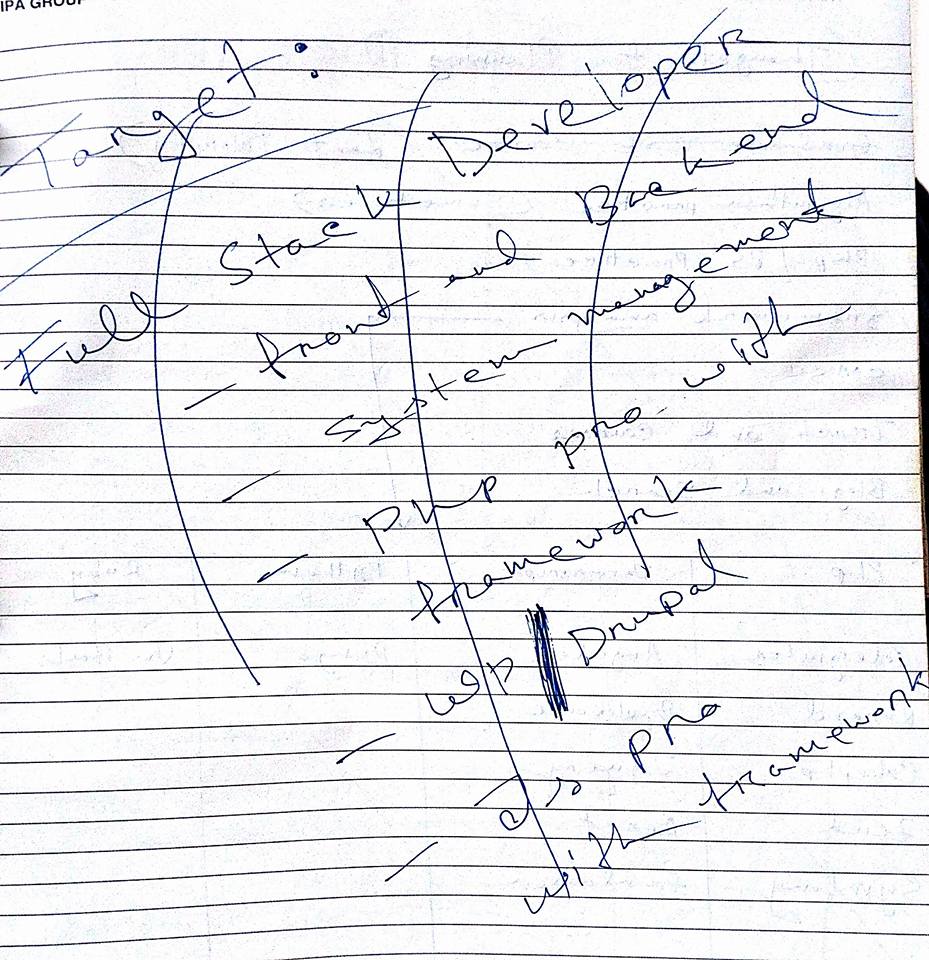 IPA GROUP
Target:
Full Stack Developer
- front end Backend
- System management
- PHP pro- with
framework
- WP | Drupal
- Js pro
with framework